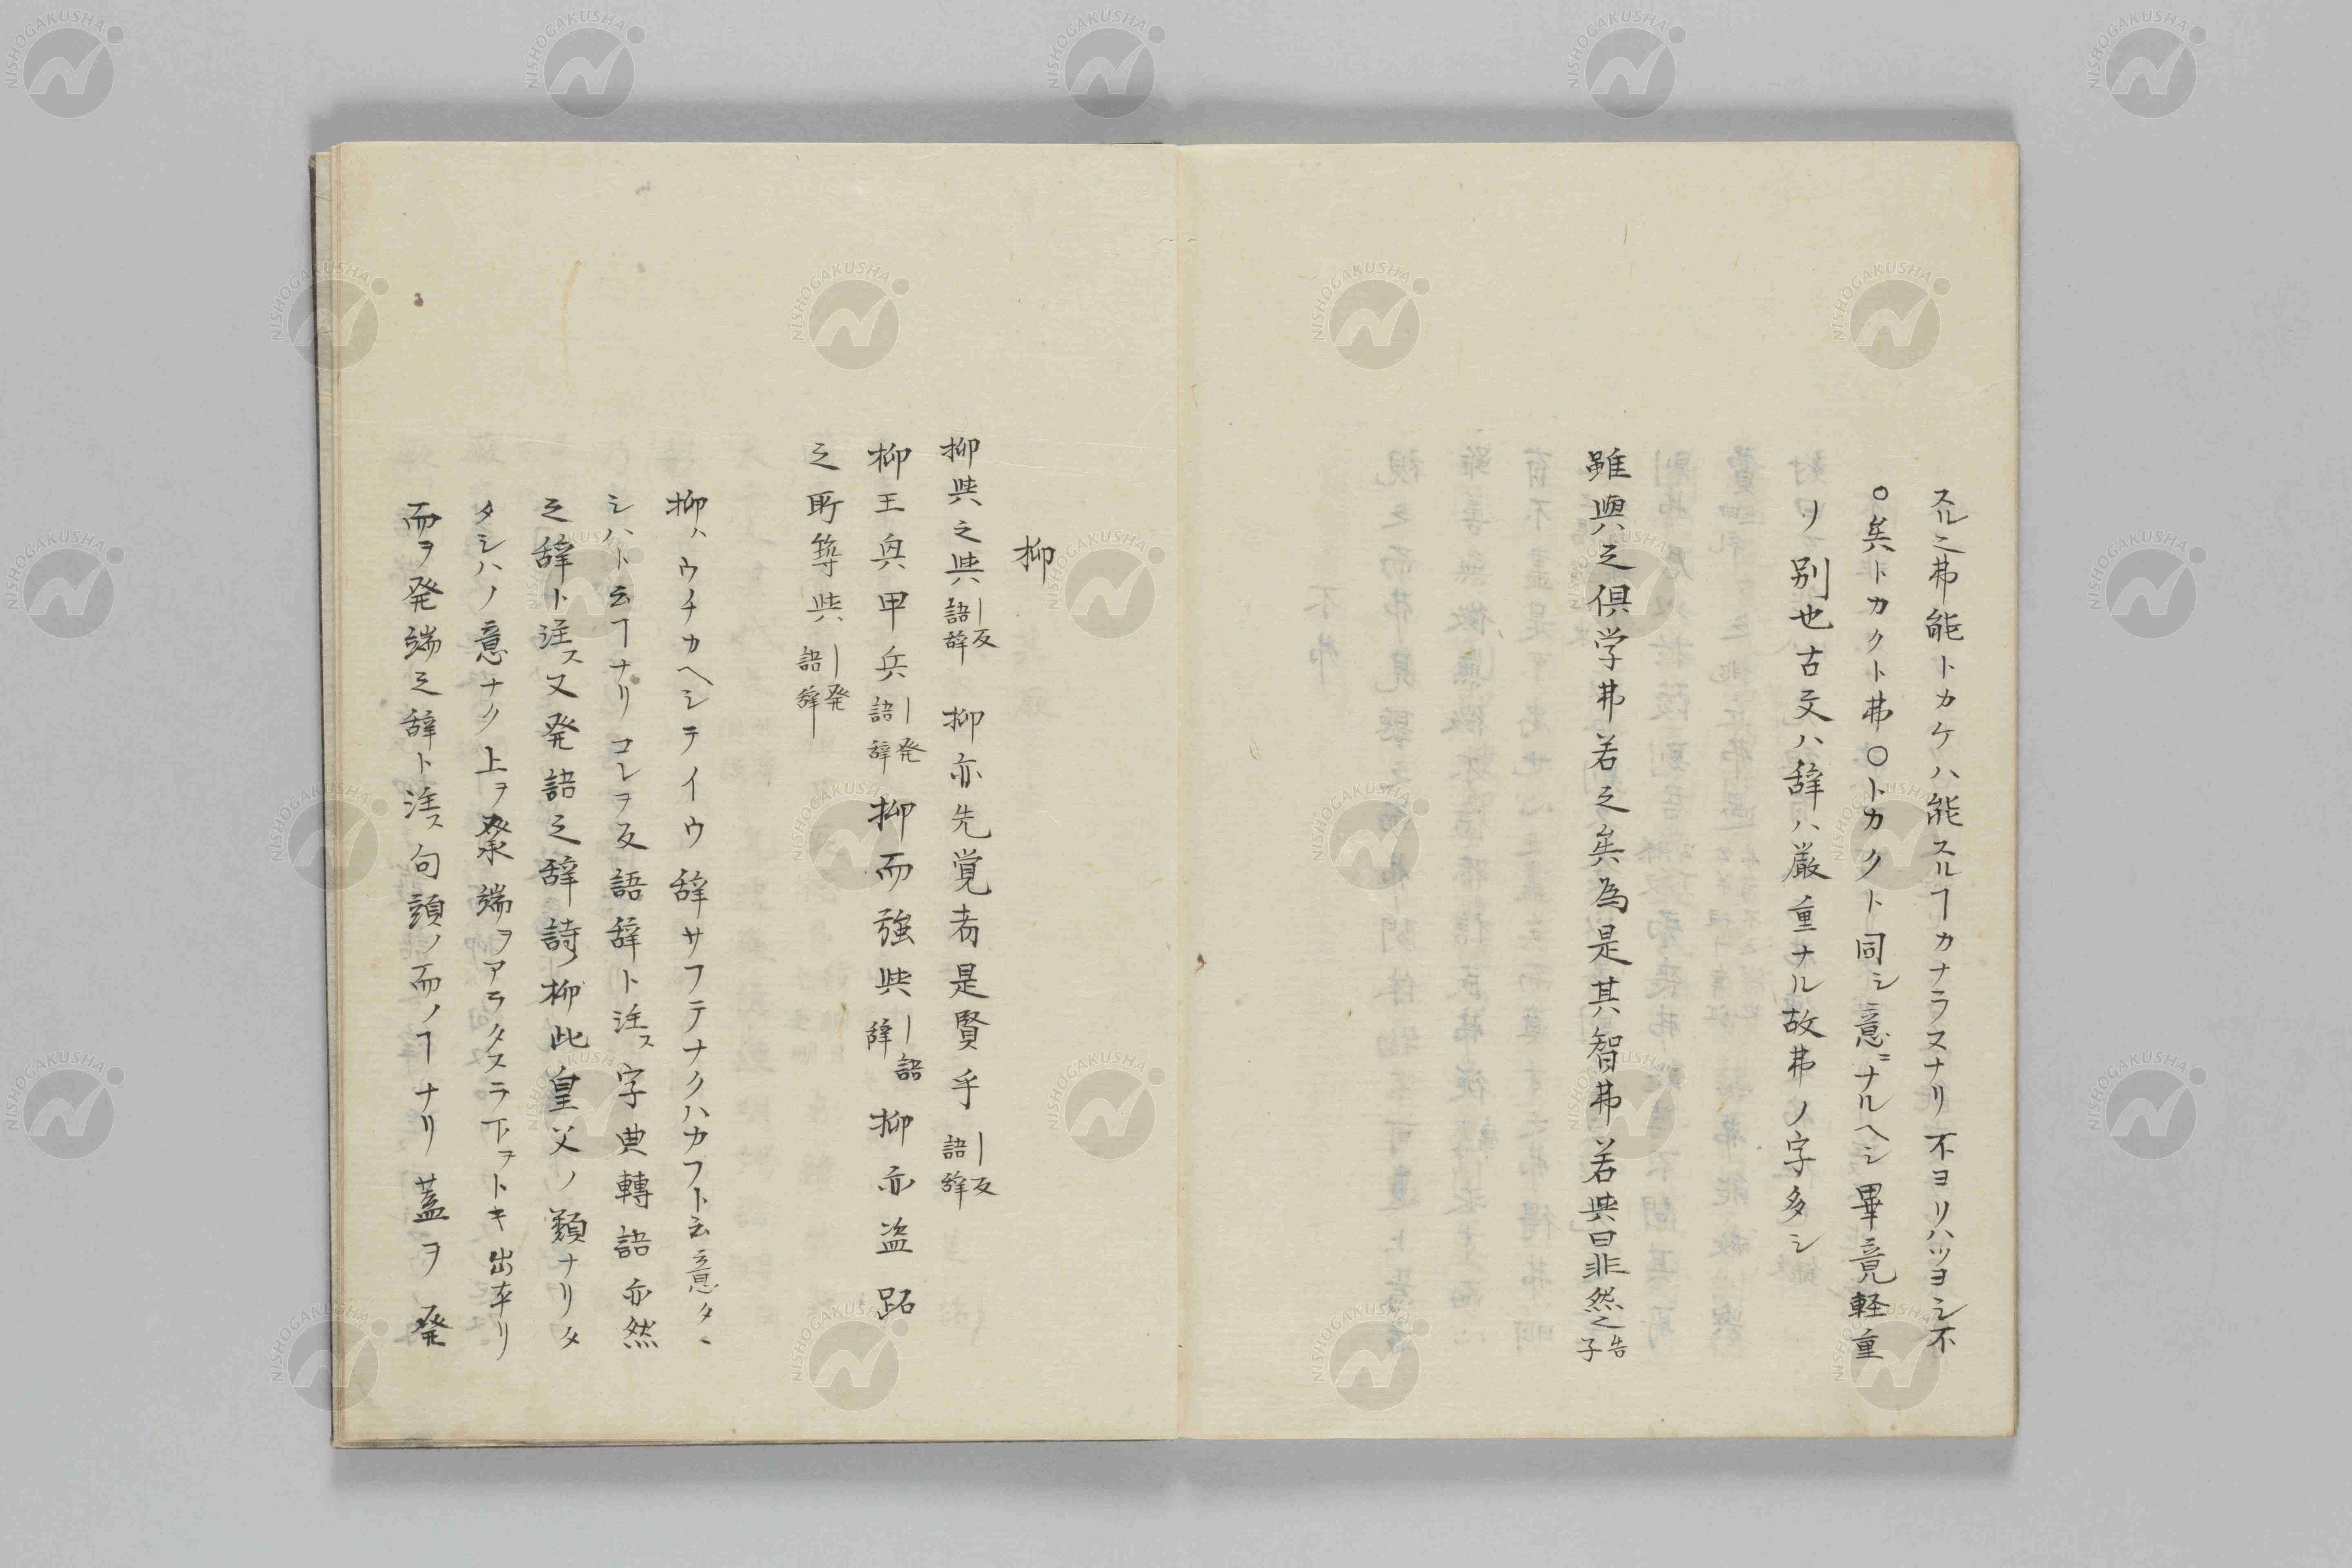 スルニ弗能トカケハ能スルヿカナラスナリ不ヨリハツヨシ不
○矣トカクト弗○トカクト同シ意ニナルヘシ畢竟軽重
ノ別也古文ハ辞ハ厳重ナル故弗ノ字多シ
雖與之俱学弗若之矣為是其智弗若與曰非然也告子
抑
抑與之與｜反語辞 抑亦先覚者是賢乎｜反語辞
抑王興甲兵｜発語辞 抑而強與｜語辞 抑亦盗跖
之所築與｜発語辞
抑ハウチカヘシテイウ辞サフテナクハカフト云意タヽ
シハト云ヿナリコレヲ反語辞ト注ス字典轉語亦然
之辞ト注ス又発語之辞詩抑此皇父ノ類ナリタ
タシハノ意ナク上ヲ承端ヲアラタスラ下ヲトキ出車リ
而ヲ発端之辞ト注ス句頭ノ而ノヿナリ蓋ヲ発